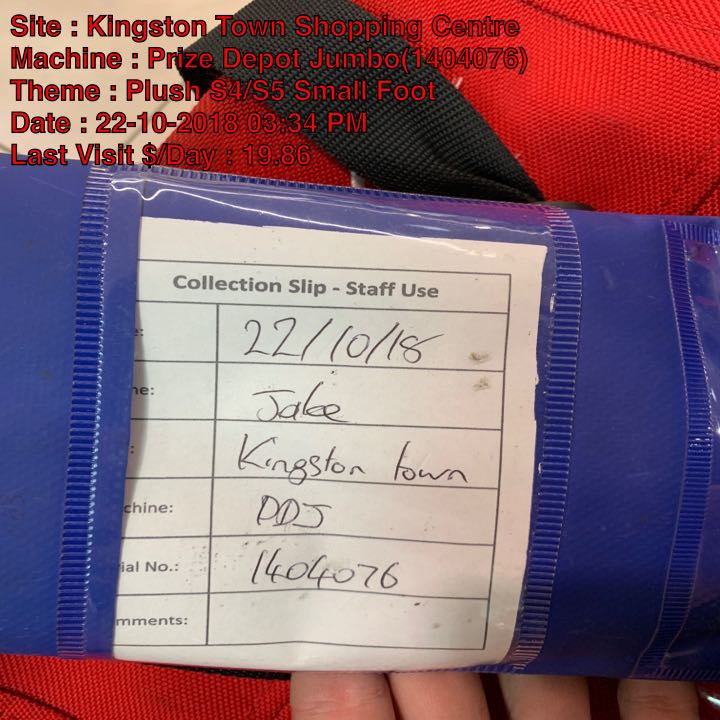 Site : Kingston Town Shopping Centre
Machine : Prize Depot Jumbo(1404076)
Theme : Plush S4/S5 Small Foot
Date : 22-10-2018 03:34 PM
Last Visit $/Day : 19.86
Collection Slip - Staff Use
e: 22/10/18
ne: Jake
: Kingston town
chine: PDJ
ial No.: 1404076
mments: